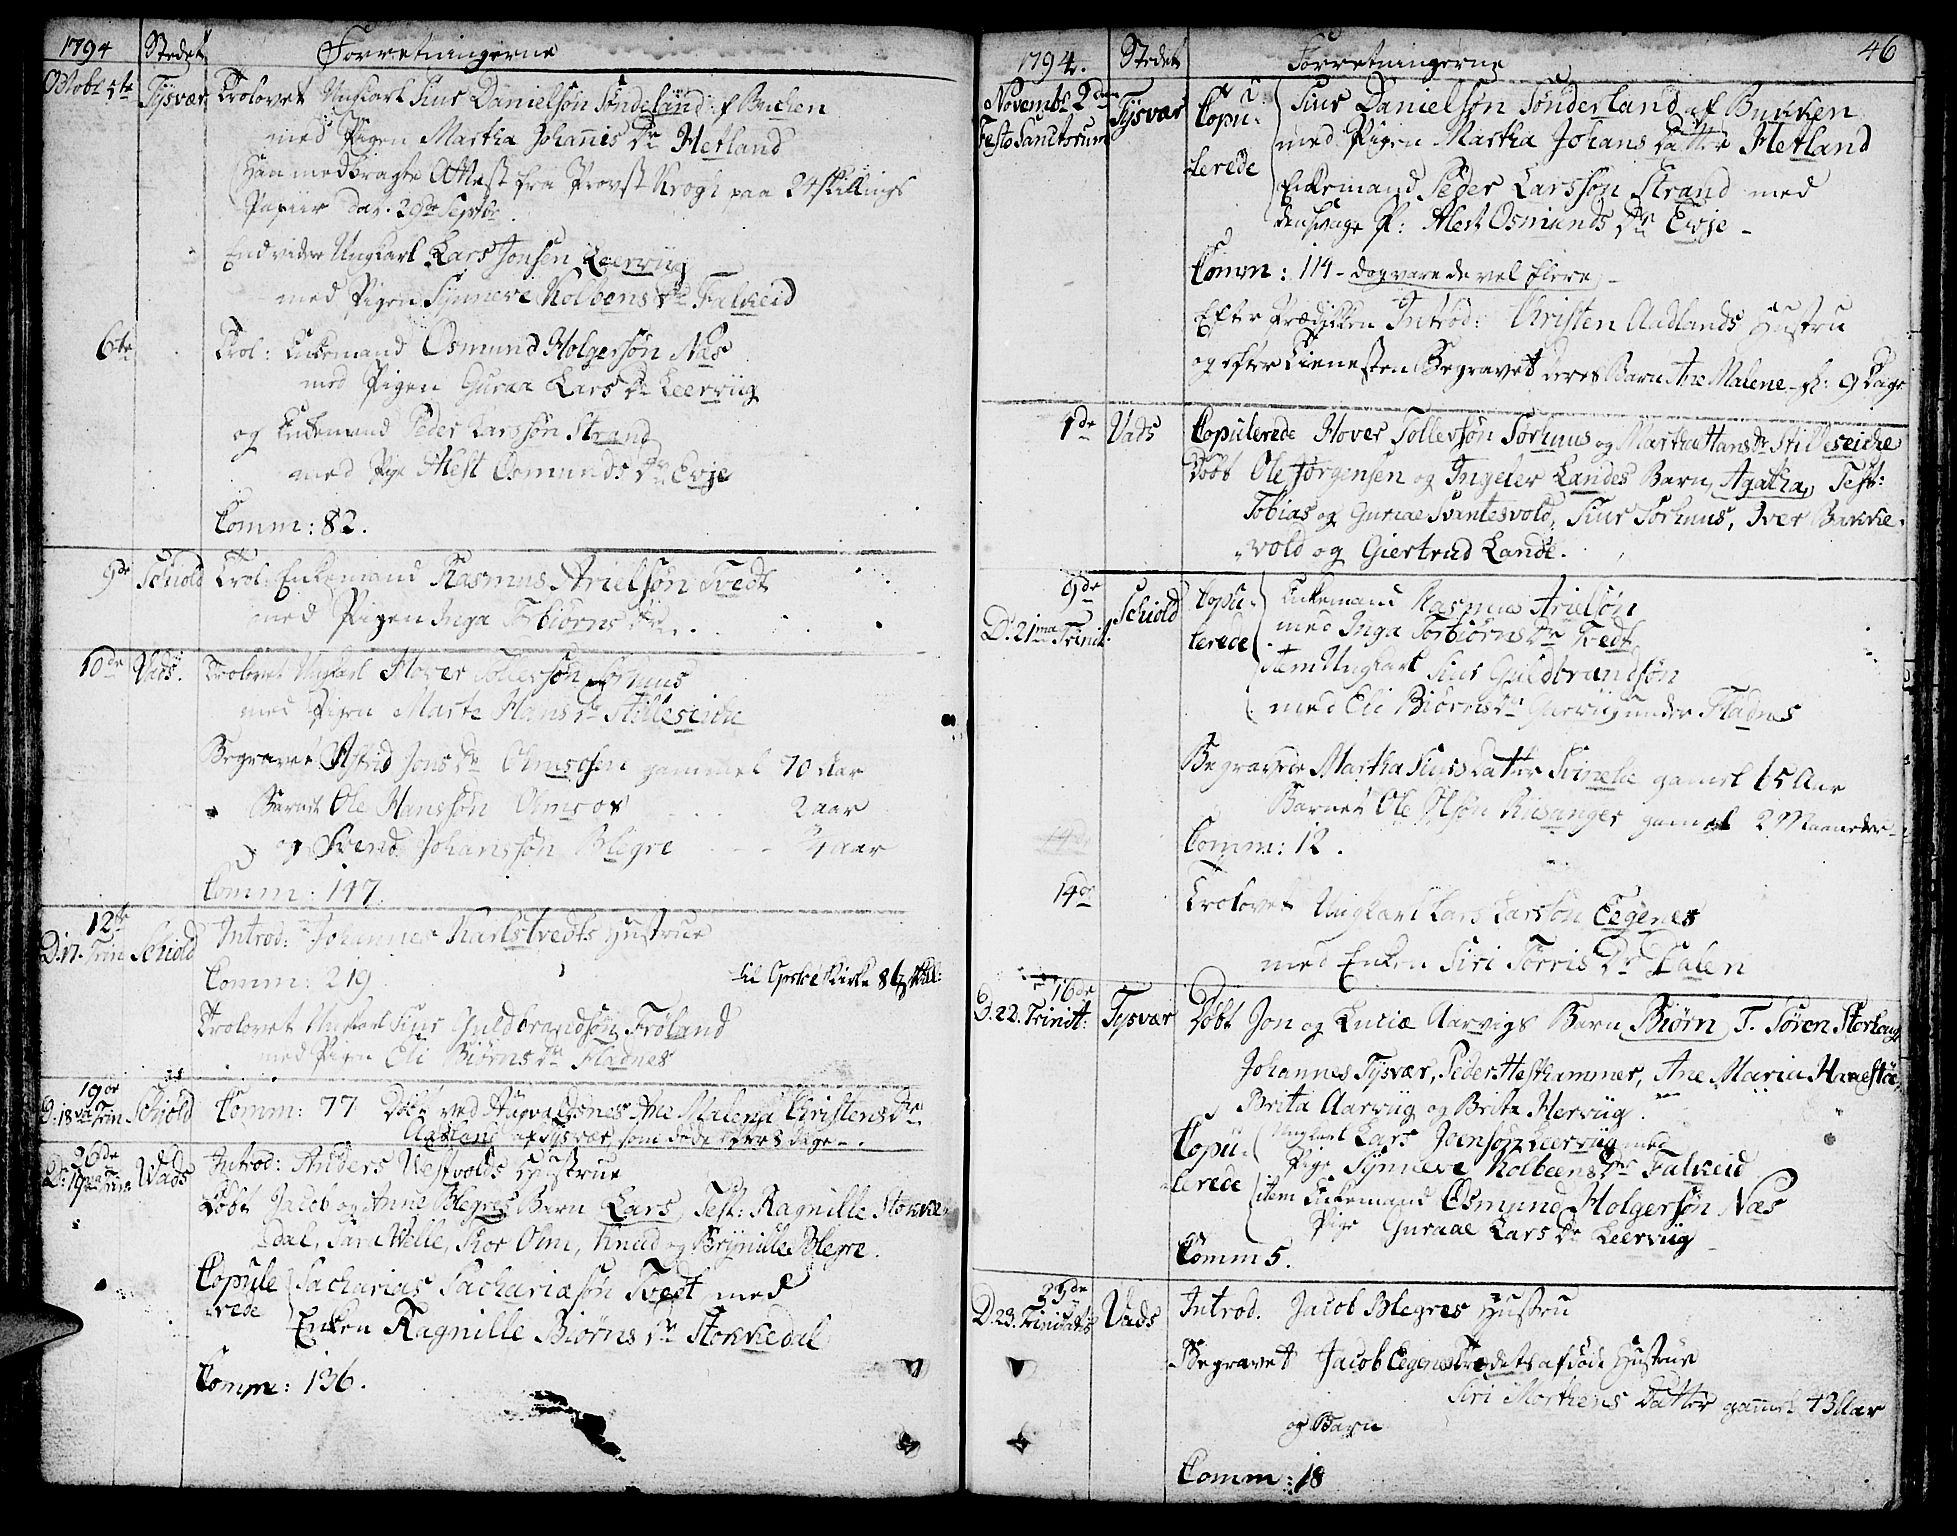 1794 Stedet Forretningerne
Octobr 5te Tysvær Trolovet Ungkarl Siur Danielsøn Sønderland af Buchen
med Pigen Martha Johannis Dr Hetland
Han medbragte Attest fra Provst Krogh paa 24 skillings
Papier dat. 29de Septbr.
End videre Ungkarl Lars Jonsen Leervüg
med Pigen Synneve Kolbens Dr Falkeid
6te Trol: Enkemand Osmund Holgersøn Næs
med Pigen Guraa Lars Dr Leervüg
og Enkemand Peder Larssøn Strand
med Pige Alest Osmunds Dr Evje
Comm: 82.
9de Schiold Trol: Enkemand Rasmus Arielsøn Tvedt
med Pigen Inga Torbiørns Dr.
10de Vads. Trolovet Ungkarl Hover Tollevsøn Sørhuus
med Pigen Marte Hans Dr Stilleseiche
Begravet Astrid Jons Dr gammel 70 Aar
Barnet Ole Hanssøn 2 aar
og Svend Johanssøn Blegre aar
Comm: 147.
12te
D. 17. Trin Schiold Introd: Johannes Karlstvedts Hustrue
Comm: 219. til Kirke
Trolovet Ungkarl Siur Guldbrandsøn Frøland
med Pigen Eli Biørns Dr Fladnes
19de
D. 18va Trin Schiold Comm: 77 Døbt ved Augvaldsnes Ane Malena Christens Dr
Aadland af Tysvær, som døde 9 dage.
26de
D. 19na Trin Vads Introd: Anders Vestvolds Hustrue
Døbt Jacob og Anne Blegres Barn Lars, Test: Ragnille Stokke-
dal, Velle, Olm, Knud og Brynille Blegre.
Copule Sacharias Sachariæsøn Tvedt med
rede Enken Ragnille Biørns Dr Stokkedal
Comm: 136.
1794. Stedet Forretningerne 46
Novembr 2den Tysvær Copu- Siur Danielsøn Sønderland af Bukken
Festo Sanctorum med Pigen Martha Johans Datter Hetland
lerede Enkemand Peder Larssøn Strand med
P: Alest Osmunds Dr Evje
Comm: 114 - dog vare de vel fleere
Efter Prædiken Introd: Christen Aadlands Hustru
og efter Tienesten Begravet deres Barn Ane Malene 9 Dage
7de Vads Copulerede Hover Tollevsøn Sørhuus og Martha Hans Dr Stilleseiche
Døbt Ole Jørgensen og Ingeler Landes Barn, Agatha, Test:
Tobias og Guriae Svantesvold, Siur Sørhuus, Iver Bakke-
vold og Giertrud Lande.
9de
D. 21ma Trinit. Schiold Copu- Enkemand Rasmus Arielsøn
med Inga Torbiørns Dr Tvedt
lerede item Ungkarl Siur Guldbrandsøn
med Eli Biørns Dr under Fladnes
Begravede Martha Siurs Datter gamel 65 Aar
Barnet Ole Olsøn Risanger gamel 2 Maaneder
Comm: 12.
14de Trolovet Ungkarl Lars Larsøn Eegenes
med Enken Siri Torris Dr Dalen
16de
D. 22. Trinit: Tysvær Døbt Jon og Luciæ Aarvigs Barn Biørn T. Søren Storhoug
Johannes Tysvær, Peder Hesthammer, Ane Maria
Brita Aarvüg og Brita Hervüg.
Copu- Ungkarl Lars Jonsøn Leervüg med
Pige Synneve Kolbeens Dr Falkeid
lerede item Enkemand Osmund Holgersøn Næs
Pige Guraae Lars Dr Leervüg
Comm 5.
23de
D. 23. Trinitatis Vads Introd. Jacob Blegres Hustru
Begravet Jacob Eegenes Trædets afdøde Hustrue
Siri Morthens Datter gammel 43 Aar
og Barn
Comm: 18